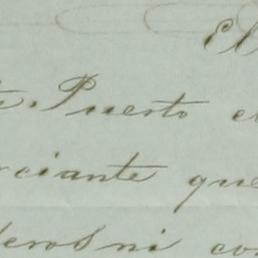 El
te. Puerto e
rciante que
deros ni co